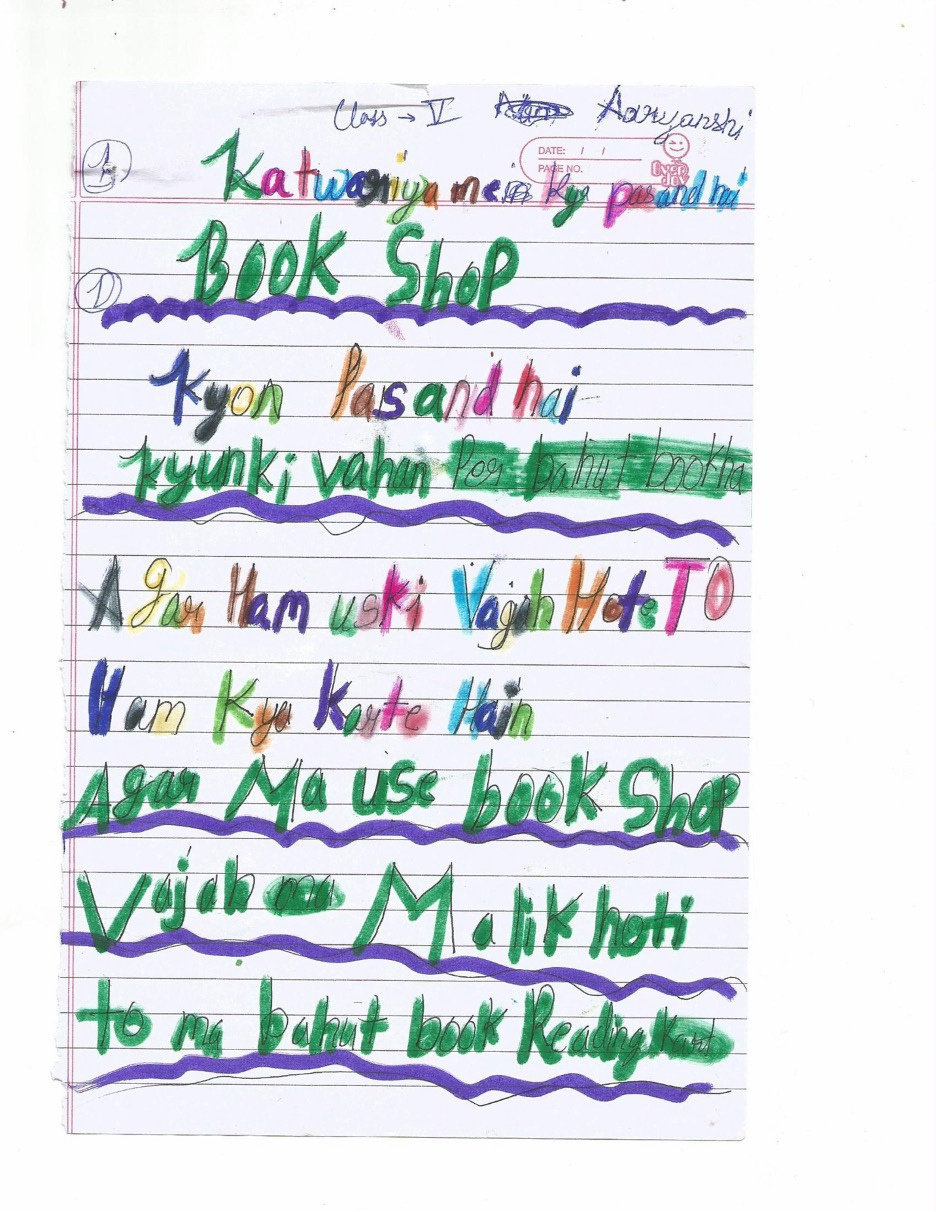 Class → V Aaryanshi
DATE: / /
PAGE NO.
1.) Katwariya mein kya pasand hai
1) Book Shop
Kyon Pasand hai
kyunki vahan Par bahut bookha
Agar Ham uski Vagah Hote TO
Ham Kya Karte Hain
Agar Ma use book Shop
Vajah ma Malik hoti
to ma bahut book Reading Kart